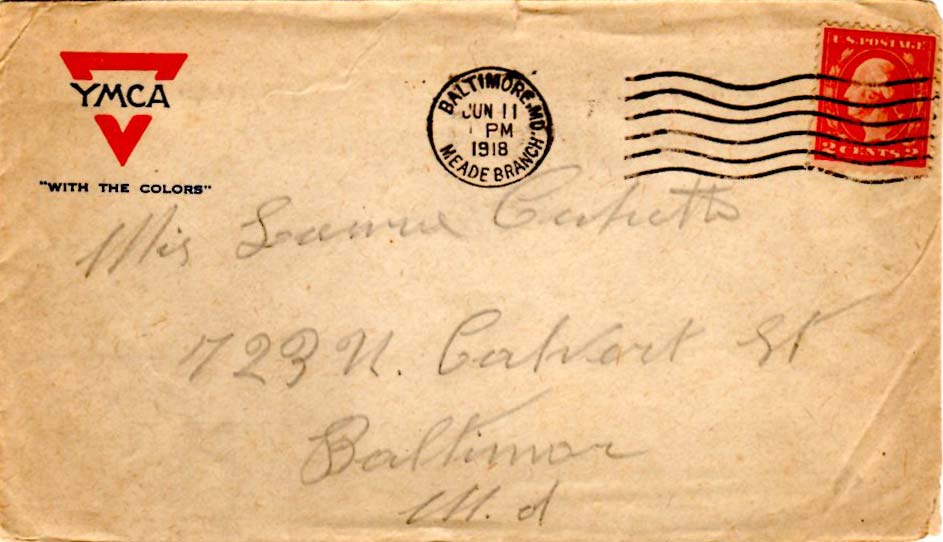 YMCA
"WITH THE COLORS"
BALTIMORE, MD.
JUN 11
PM
1918
MEADE BRANCH
U.S. POSTAGE
2 CENTS 2
Mis
723 N. Calvert St
Baltimor
M. d